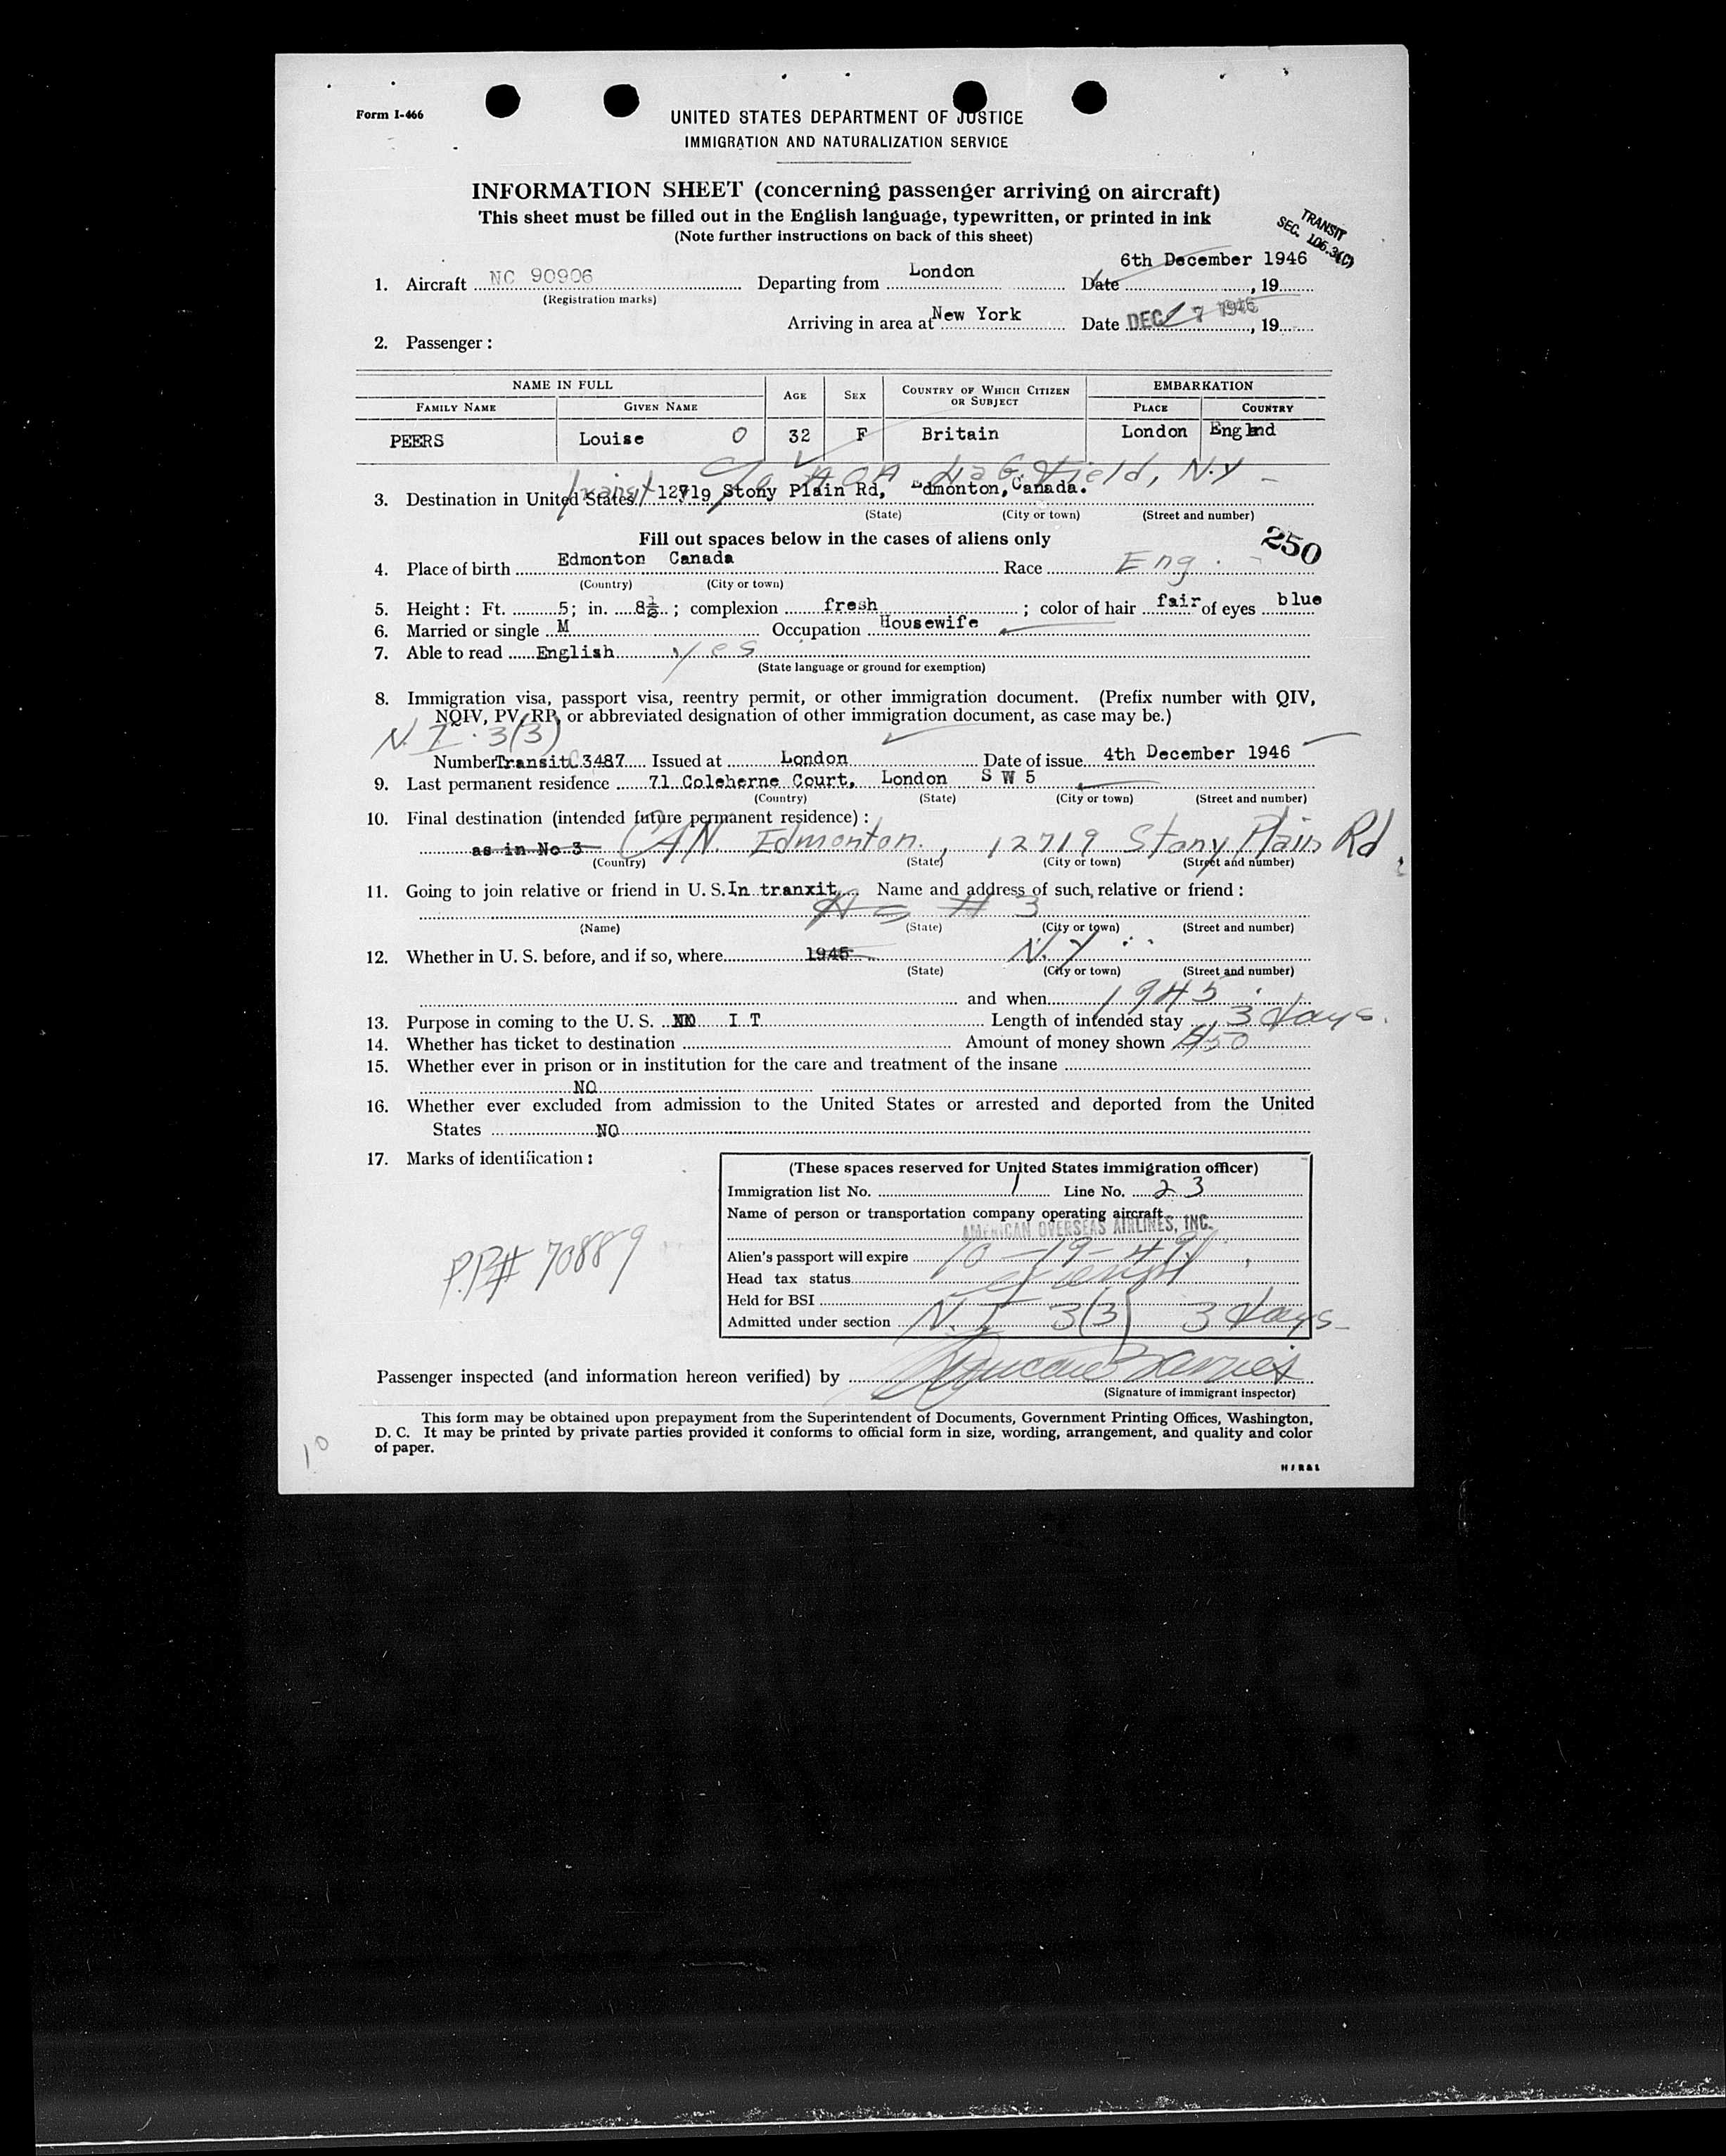 Form I-466
UNITED STATES DEPARTMENT OF JUSTICE
IMMIGRATION AND NATURALIZATION SERVICE
INFORMATION SHEET (concerning passenger arriving on aircraft)
This sheet must be filled out in the English language, typewritten, or printed in ink
(Note further instructions on back of this sheet)
TRANSIT
SEC. 105.3(C)
6th December 1946
1. Aircraft NC 90906 Departing from London Date , 19
(Registration marks)
Arriving in area at New York Date DEC 7 1946 , 19
2. Passenger :
NAME IN FULL AGE SEX COUNTRY OF WHICH CITIZEN OR SUBJECT EMBARKATION
FAMILY NAME GIVEN NAME PLACE COUNTRY
PEERS Louise O 32 F Britain London England
Transit c/o AOA Field, N.Y
3. Destination in United States 12719 Stony Plain Rd, Edmonton, Canada.
(State) (City or town) (Street and number)
Fill out spaces below in the cases of aliens only
250
4. Place of birth Edmonton Canada Race Eng.
(Country) (City or town)
5. Height : Ft. 5; in. 8½ ; complexion fresh ; color of hair fair of eyes blue
6. Married or single M Occupation Housewife
7. Able to read English yes
(State language or ground for exemption)
8. Immigration visa, passport visa, reentry permit, or other immigration document. (Prefix number with QIV,
NQIV, PV, RP, or abbreviated designation of other immigration document, as case may be.)
N.I. 3(3)
Number Transit 3487 Issued at London Date of issue 4th December 1946
9. Last permanent residence 71 Coleherne Court, London S W 5
(Country) (State) (City or town) (Street and number)
10. Final destination (intended future permanent residence) :
as in No 3 CAN. Edmonton, 12719 Stany Plain Rd
(Country) (State) (City or town) (Street and number)
11. Going to join relative or friend in U. S. In tranxit Name and address of such relative or friend :
As # 3
(Name) (State) (City or town) (Street and number)
12. Whether in U. S. before, and if so, where 1945 N.Y.
(State) (City or town) (Street and number)
and when 1945
13. Purpose in coming to the U. S. NO I T Length of intended stay 3 days.
14. Whether has ticket to destination Amount of money shown $50
15. Whether ever in prison or in institution for the care and treatment of the insane
NO
16. Whether ever excluded from admission to the United States or arrested and deported from the United
States NO
17. Marks of identification :
P.P.# 70889
(These spaces reserved for United States immigration officer)
Immigration list No. 1 Line No. 23
Name of person or transportation company operating aircraft
AMERICAN OVERSEAS AIRLINES, INC.
Alien's passport will expire 10-19-49
Head tax status exempt
Held for BSI
Admitted under section N.I 3(3) 3 days
Passenger inspected (and information hereon verified) by
(Signature of immigrant inspector)
This form may be obtained upon prepayment from the Superintendent of Documents, Government Printing Offices, Washington,
D. C. It may be printed by private parties provided it conforms to official form in size, wording, arrangement, and quality and color
of paper.
10